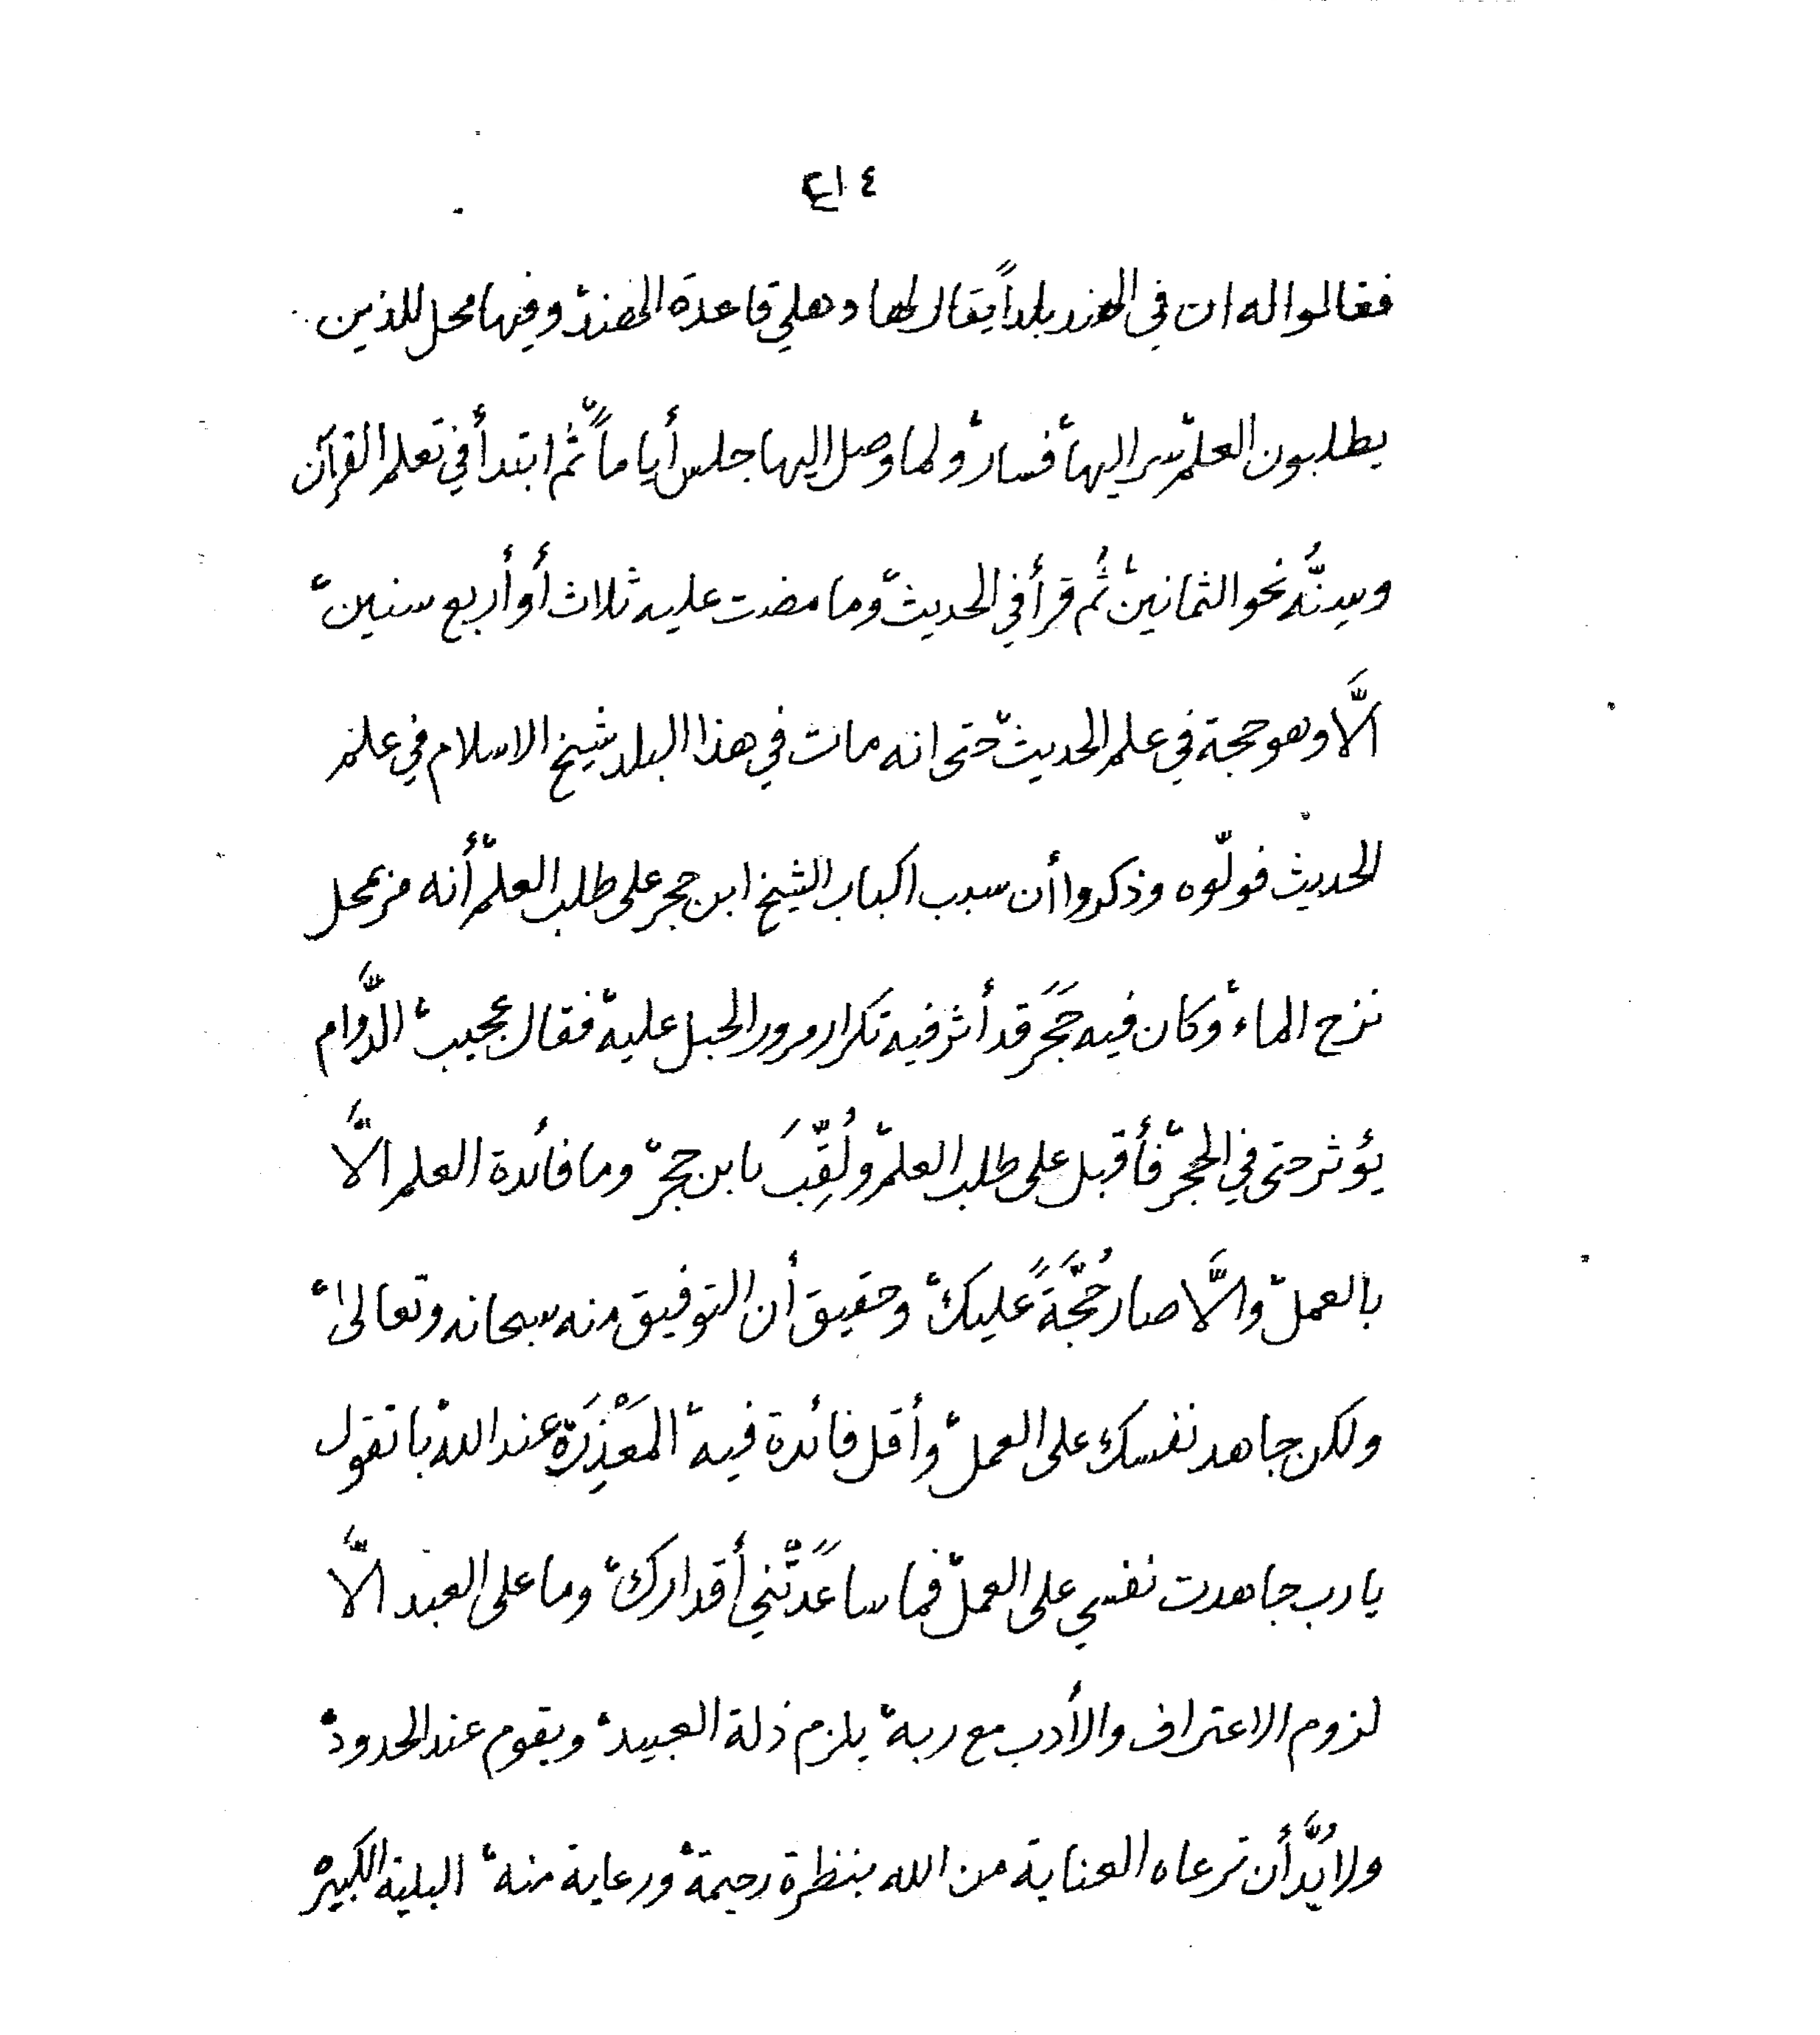 ٤١٤
فقالوا له ان في الهند بلداً يقال لها دهلي قاعدة الهند، وفيها محل للذين
يطلبون العلم، سر اليها، فسار، ولما وصل اليها جلس أياماً، ثم ابتدأ في تعلم القرآن
وسِنُّه نحو الثمانين، ثُم قرأ في الحديث، وما مضت عليه ثلاث أو أربع سنين،
الَّا وهو حجة في علم الحديث، حتى انه مات في هذا البلد شيخ الاسلام في علم
الحديث فولّوه وذكروا أن سبب اكباب الشيخ ابن حجر على طلب العلم، أنه مر بمحل
نزح الماء، وكان فيه حَجَر قد أثر فيه تكرار مرور الحبل عليه، فقال عجيب، الدَّوام
يؤثر حتى في الحجر، فأقبل على طلب العلم، ولُقِّبَ بابن حجر، وما فائدة العلم الَّا
بالعمل، والَّا صار حُجَّةً عليك، وحقيق أن التوفيق منه سبحانه وتعالى،
ولكن جاهد نفسك على العمل، وأقل فائدة فيه، المَعْذِرَة عند الله، با تقول
يارب جاهدت نفسي على العمل، فما ساعدتْني أقدارك، وما على العبد الَّا
لزوم الاعتراف والأدب مع ربه، يلزم ذلة العبيد، ويقوم عند الحدود،
ولابُدَّ أن ترعاه العناية من الله بنظرة رحيمة، ورعاية منه، البلية الكبيرة